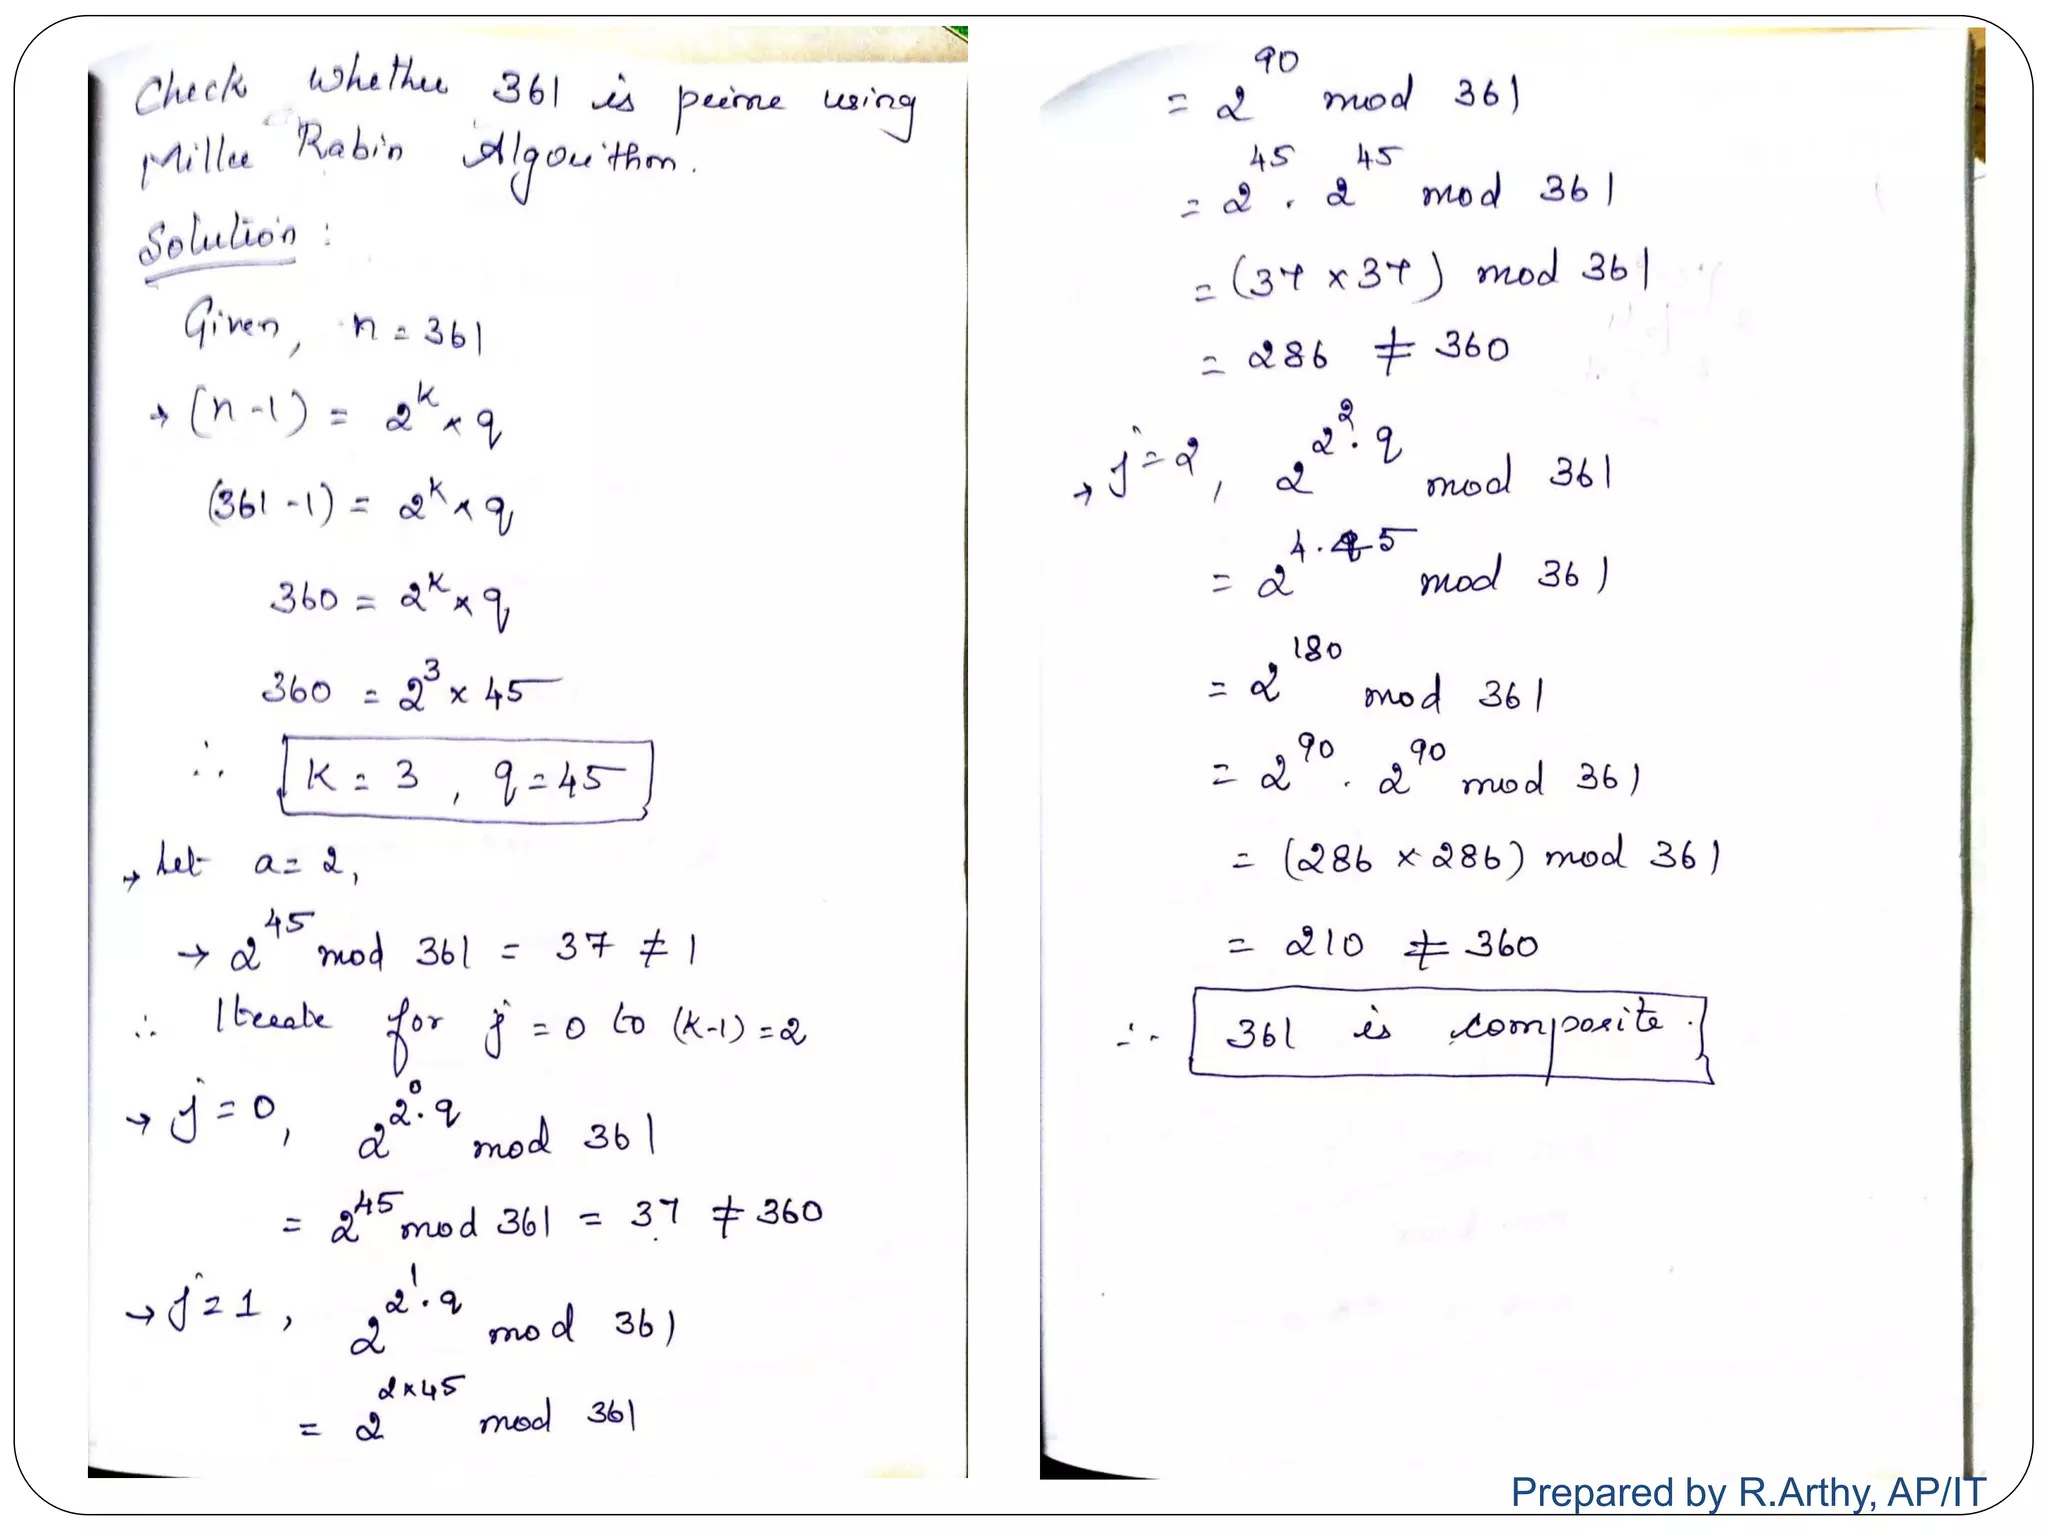 Check Whether 361 is prime using
Miller Rabin Algorithm.
Solution :
Given, n = 361
→ (n-1) = 2^k × q
(361-1) = 2^k × q
360 = 2^k × q
360 = 2^3 × 45
∴ K = 3, q = 45
→ Let a = 2,
→ 2^45 mod 361 = 37 ≠ 1
∴ Iterate for j = 0 to (k-1) = 2
→ j = 0, 2^(2^0 · q) mod 361
= 2^45 mod 361 = 37 ≠ 360
→ j = 1, 2^(2^1 · q) mod 361
= 2^(2×45) mod 361
= 2^90 mod 361
= 2^45 · 2^45 mod 361
= (37 × 37) mod 361
= 286 ≠ 360
→ j = 2, 2^(2^2 · q) mod 361
= 2^(4·45) mod 361
= 2^180 mod 361
= 2^90 · 2^90 mod 361
= (286 × 286) mod 361
= 210 ≠ 360
∴ 361 is composite.
Prepared by R.Arthy, AP/IT